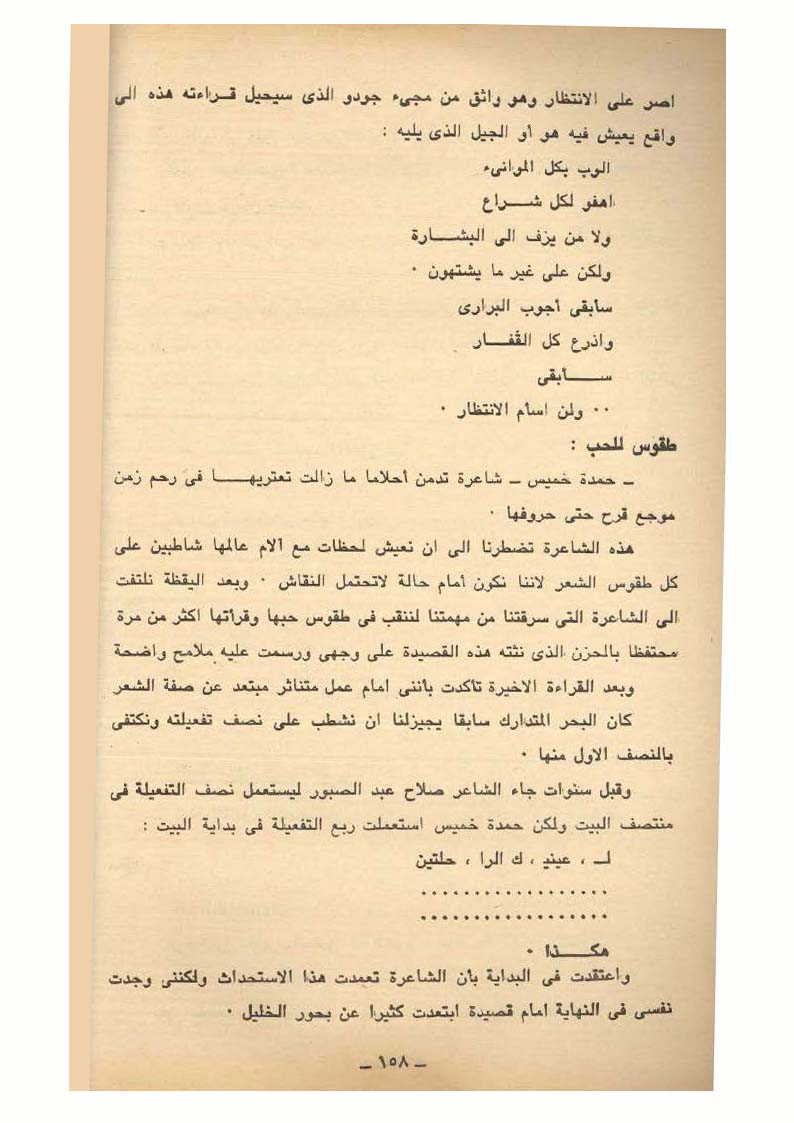 اصر على الانتظار وهو واثق من مجىء جودو الذى سيحيل قراءته هذه الى
واقع يعيش فيه هو أو الجيل الذى يليه :
الوب بكل الموانىء
اهفو لكل شراع
ولا من يزف الى البشارة
ولكن على غير ما يشتهون ·
سأبقى أجوب البرارى
واذرع كل القفار
سأبقى
·· ولن اسأم الانتظار ·
طقوس للحب :
– حمدة خميس – شاعرة تدمن أحلاما ما زالت تعتريها فى رحم زمن
موجع قرح حتى حروفها ·
هذه الشاعرة تضطرنا الى ان نعيش لحظات مع آلام عالمها شاطبين على
كل طقوس الشعر لاننا نكون أمام حالة لاتحتمل النقاش · وبعد اليقظة نلتفت
الى الشاعرة التى سرقتنا من مهمتنا لننقب فى طقوس حبها وقرأتها اكثر من مرة
محتفظا بالحزن الذى نثته هذه القصيدة على وجهى ورسمت عليه ملامح واضحة
وبعد القراءة الاخيرة تأكدت بأننى امام عمل متناثر مبتعد عن صفة الشعر
كان البحر المتدارك سابقا يجيزلنا ان نشطب على نصف تفعيلته ونكتفى
بالنصف الاول منها ·
وقبل سنوات جاء الشاعر صلاح عبد الصبور ليستعمل نصف التفعيلة فى
منتصف البيت ولكن حمدة خميس استعملت ربع التفعيلة فى بداية البيت :
لـ ، عينيـ ، ك الرا ، حلتين
··················
··················
هكذا ·
واعتقدت فى البداية بأن الشاعرة تعمدت هذا الاستحداث ولكننى وجدت
نفسى فى النهاية امام قصيدة ابتعدت كثيرا عن بحور الخليل ·
– ١٥٨ –